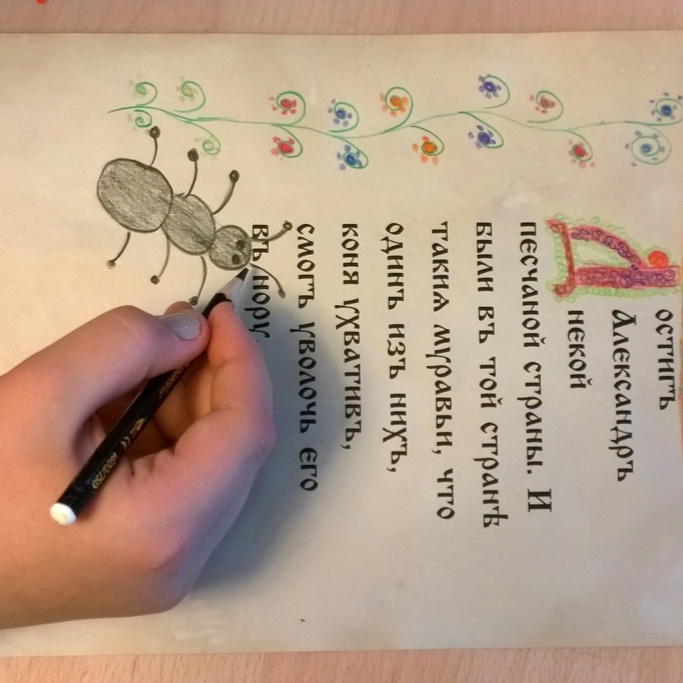 Достигъ
Александръ
некой
песчаной страны. И
были въ той странѣ
такиѧ муравьи, что
одинъ изъ нихъ,
коня ухвативъ,
смогъ уволочь его
въ нору.